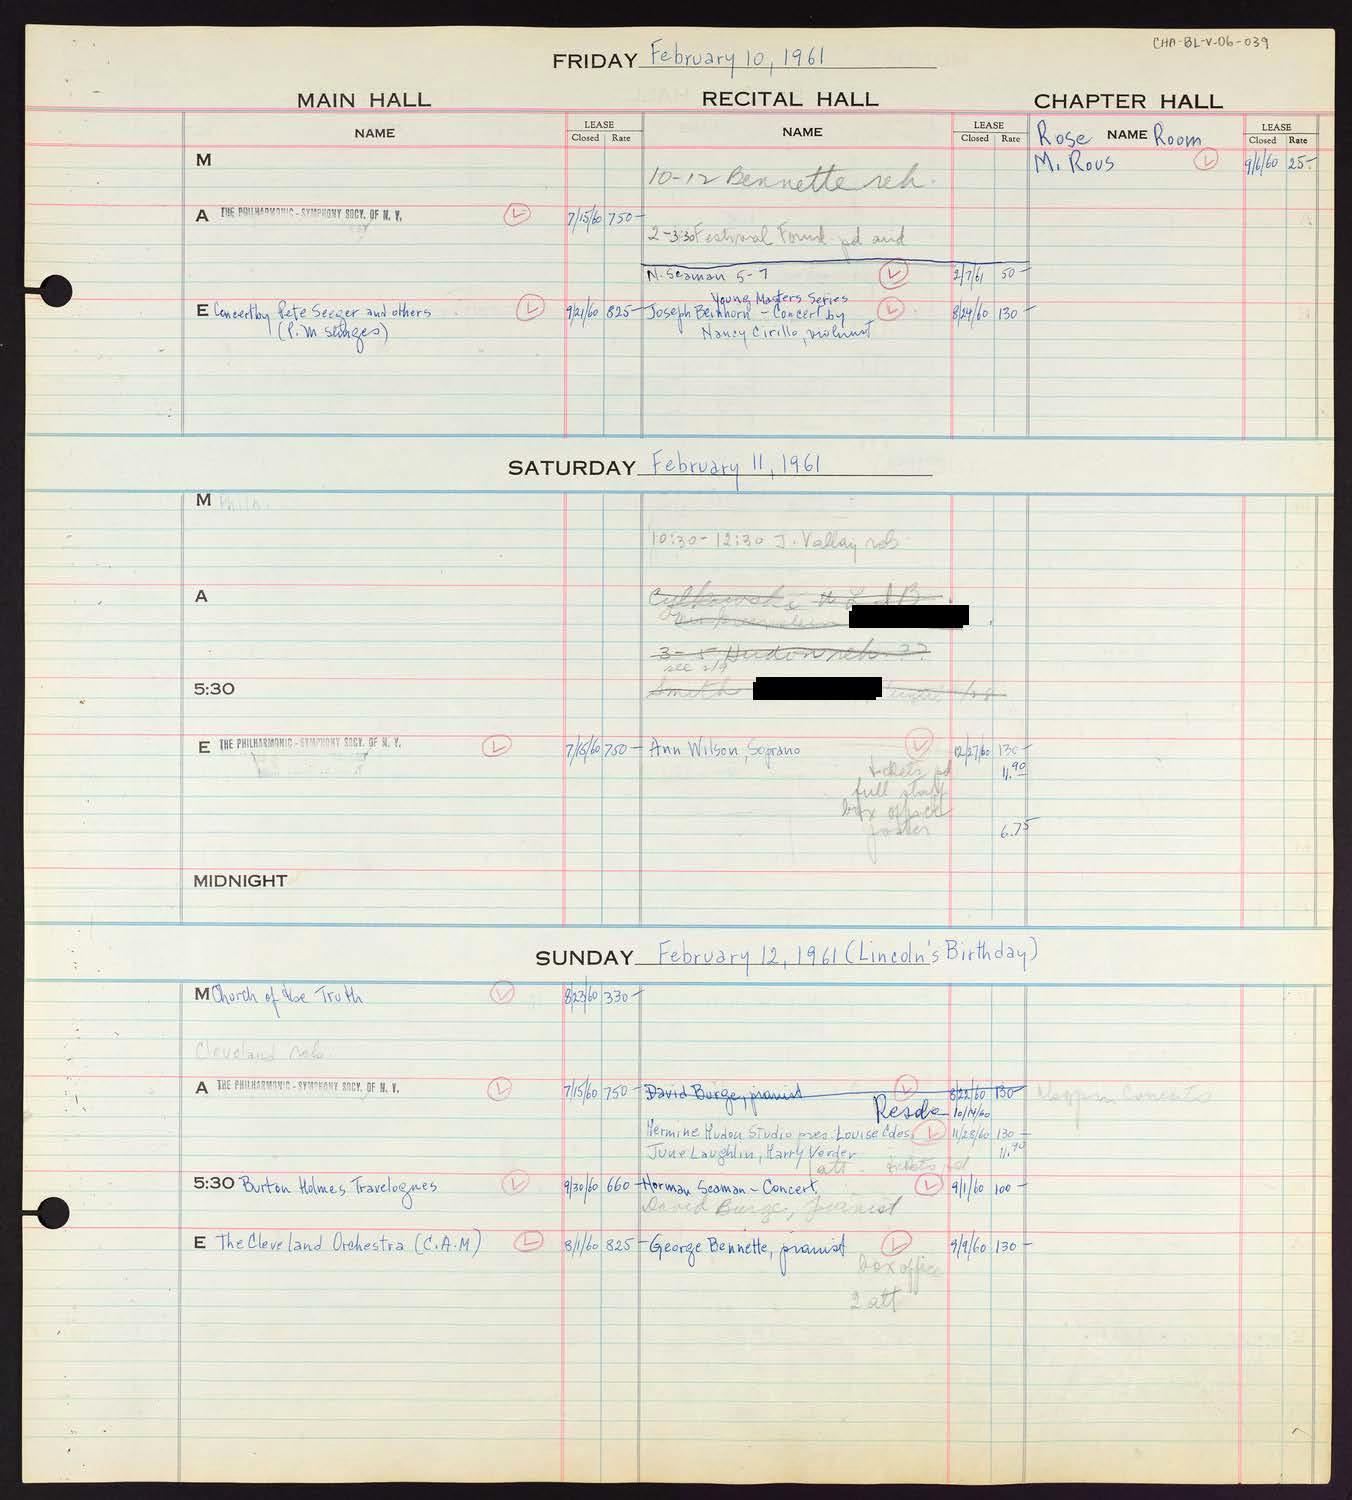 CHA-BL-V-06-039
FRIDAY February 10, 1961
MAIN HALL RECITAL HALL CHAPTER HALL
NAME LEASE Closed Rate NAME LEASE Closed Rate Rose NAME Room LEASE Closed Rate
M
M. Rous 9/6/60 25-
10-12 Bennette reh.
A THE PHILHARMONIC-SYMPHONY SOCY. OF N. Y. 7/15/60 750-
2-3:30 Festival Found pd and
N. Seaman 5-7 2/7/61 50-
Young Masters Series
E Concert by Pete Seeger and others 9/21/60 825- Joseph Beinhorn - Concert by 8/24/60 130-
(P.M. ) Nancy Cirillo, violinist
SATURDAY February 11, 1961
M Philh.
10:30-12:30 J. Vallay reh
A
3-5 Hudon reh. ??
see 2/9
5:30 Smith
E THE PHILHARMONIC-SYMPHONY SOCY. OF N. Y. 7/15/60 750- Ann Wilson, Soprano 12/27/60 130-
tickets pd 11.90
full staff
box office
poster 6.75
MIDNIGHT
SUNDAY February 12, 1961 (Lincoln's Birthday)
M Church of the Truth 8/23/60 330-
Cleveland reh
A THE PHILHARMONIC-SYMPHONY SOCY. OF N. Y. 7/15/60 750- David Burge, pianist 8/22/60 130-
10/14/60
Hermine Hudon Studio pres. Louise Edes, 11/28/60 130-
June Laughlin, Harry Verder 11.90
1 att. tickets pd
5:30 Burton Holmes Travelogues 9/30/60 660- Norman Seaman - Concert 9/1/60 100-
David Burge, pianist
E The Cleveland Orchestra (C.A.M) 8/1/60 825- George Bennette, pianist 9/9/60 130-
box office
2 att